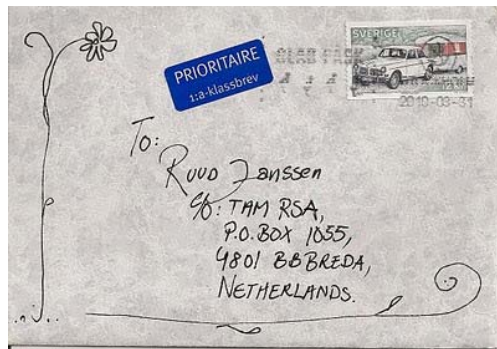 SVERIGE
PRIORITAIRE
1:a-klassbrev
GLAD PÅSK
2010-03-31
To:
Ruud Janssen
c/o: TAM RSA,
P.O. BOX 1055,
4801 BB BREDA,
NETHERLANDS.